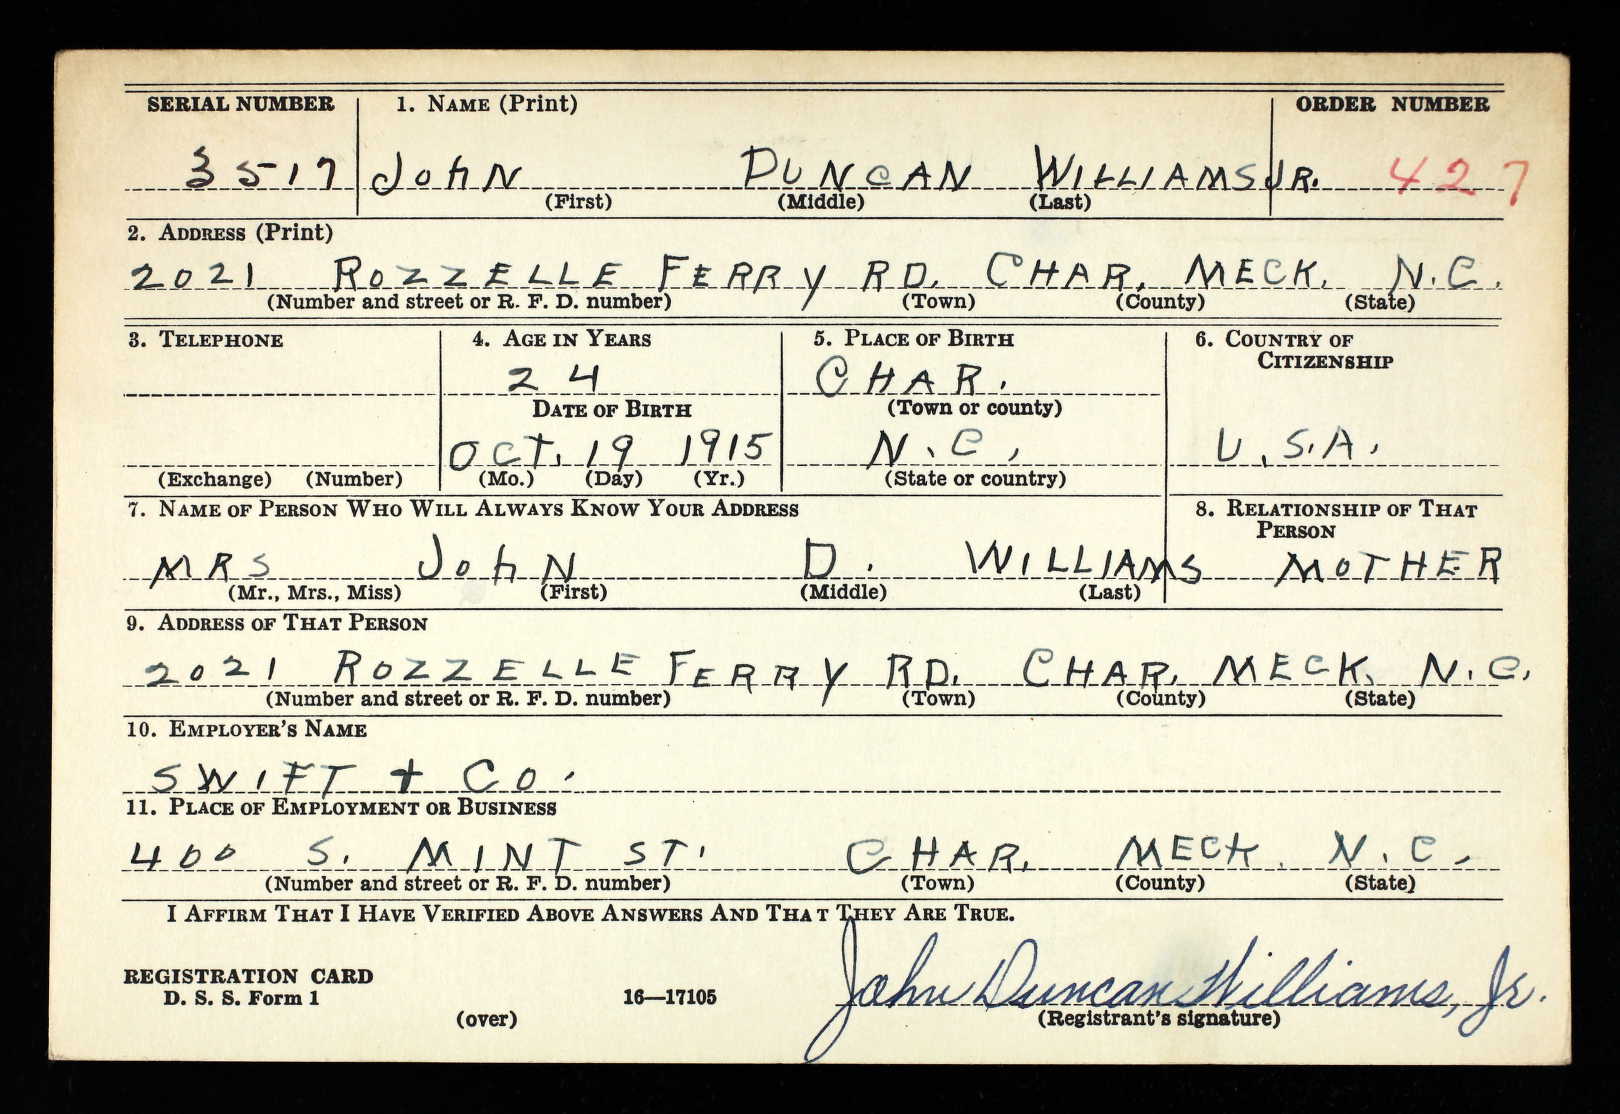 SERIAL NUMBER 1. NAME (Print) ORDER NUMBER
3517 JOHN DUNCAN WILLIAMS JR. 427
(First) (Middle) (Last)
2. ADDRESS (Print)
2021 ROZZELLE FERRY RD. CHAR. MECK. N.C.
(Number and street or R. F. D. number) (Town) (County) (State)
3. TELEPHONE 4. AGE IN YEARS 5. PLACE OF BIRTH 6. COUNTRY OF
CITIZENSHIP
24 CHAR.
DATE OF BIRTH (Town or county)
OCT. 19 1915 N.C. U.S.A.
(Exchange) (Number) (Mo.) (Day) (Yr.) (State or country)
7. NAME OF PERSON WHO WILL ALWAYS KNOW YOUR ADDRESS 8. RELATIONSHIP OF THAT
PERSON
MRS JOHN D. WILLIAMS MOTHER
(Mr., Mrs., Miss) (First) (Middle) (Last)
9. ADDRESS OF THAT PERSON
2021 ROZZELLE FERRY RD. CHAR. MECK. N.C.
(Number and street or R. F. D. number) (Town) (County) (State)
10. EMPLOYER'S NAME
SWIFT + CO.
11. PLACE OF EMPLOYMENT OR BUSINESS
400 S. MINT ST. CHAR. MECK. N.C.
(Number and street or R. F. D. number) (Town) (County) (State)
I AFFIRM THAT I HAVE VERIFIED ABOVE ANSWERS AND THAT THEY ARE TRUE.
REGISTRATION CARD John Duncan Williams, Jr.
D. S. S. Form 1 16—17105
(over) (Registrant's signature)